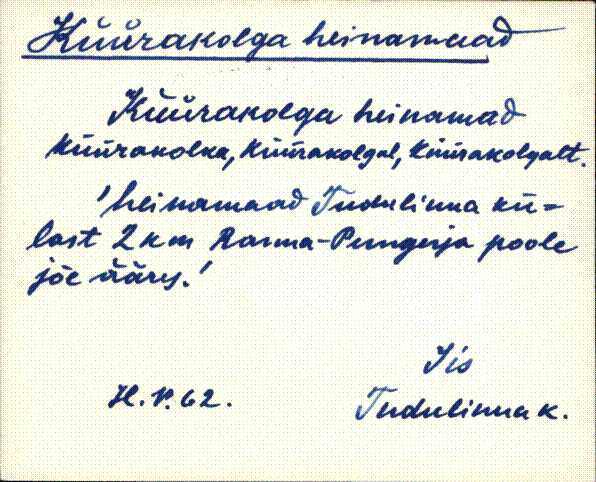 Küürakolga heinamaad
Küürakolga heinamad
Küürakolka, Küürakolgal, Küürakolgalt.
'heinamaad Tudulinna kü=
last 2 km Ranna-Pungerja poole
jõe ääres.'
Iis
H. P. 62.
Tudulinna k.